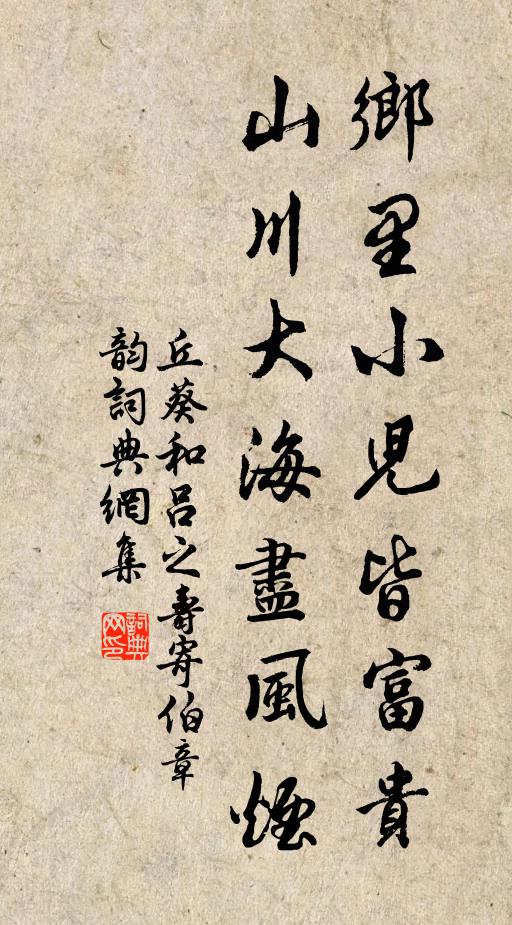 鄉里小児皆富貴
山川大海盡風煙
丘葵和呂之壽寄伯章
韵詞典網集
詞典网印